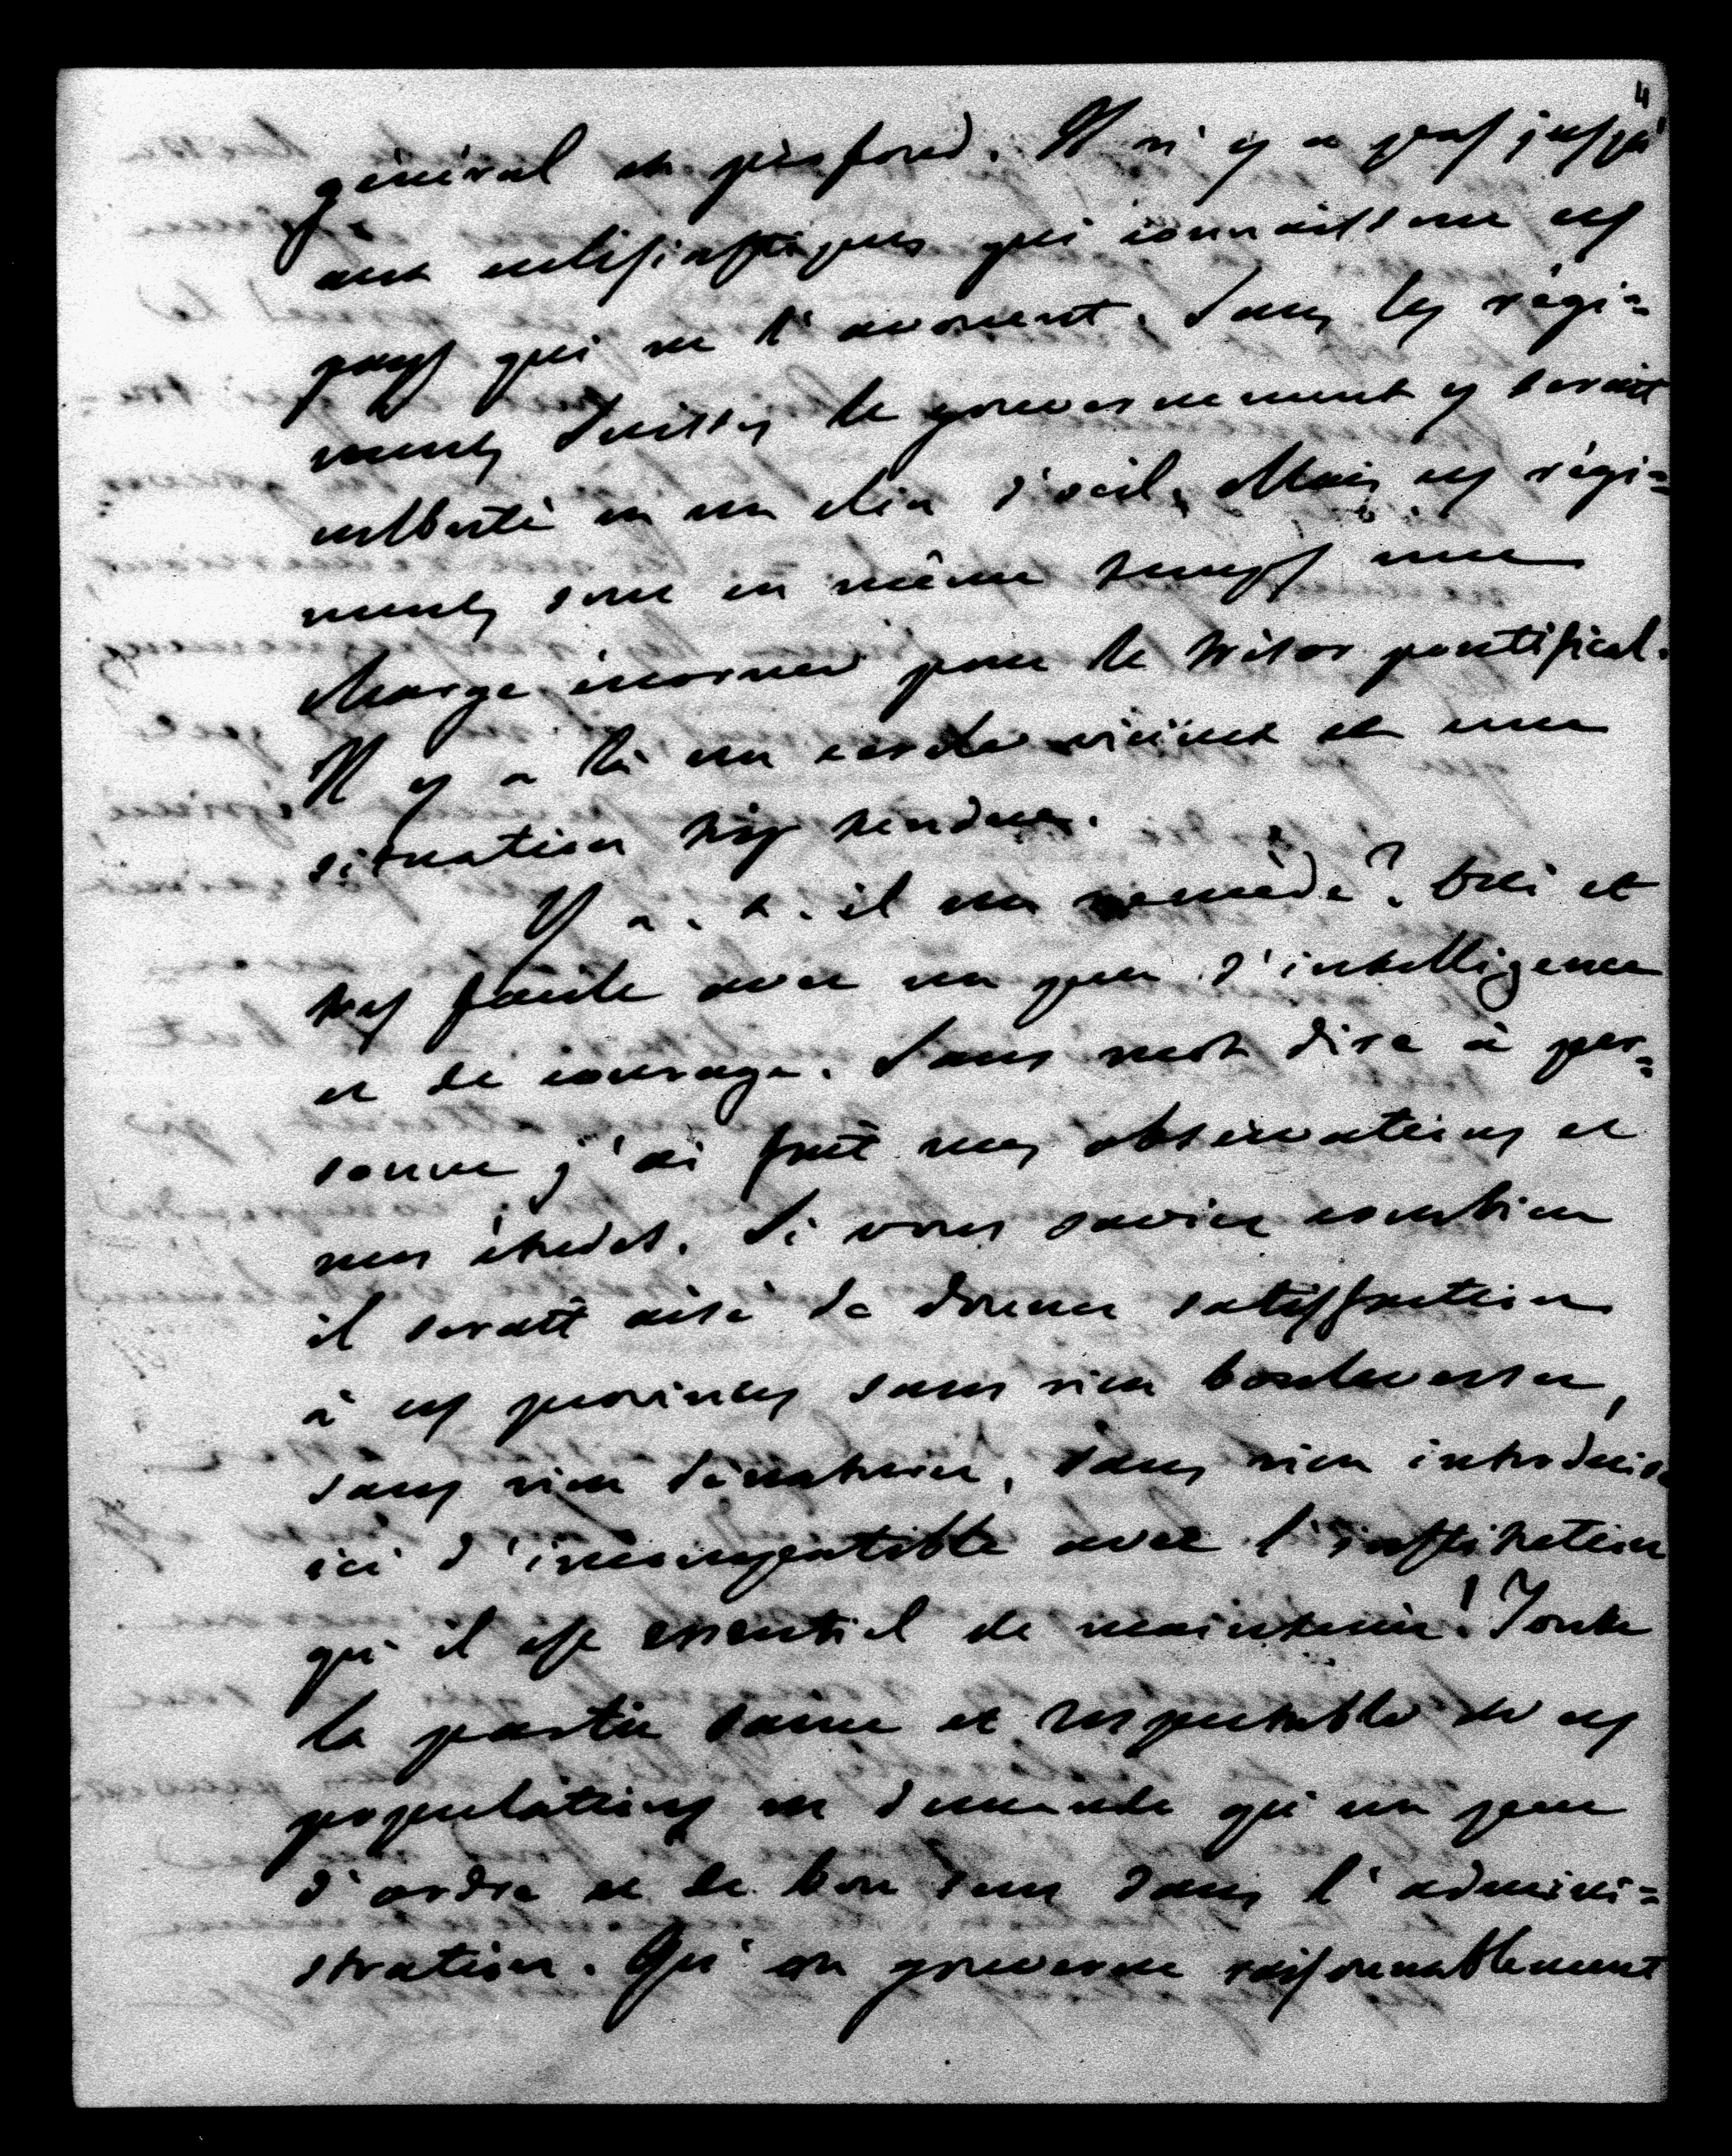 4
général et profond. Il n'y a pas jusqu'
aux ecclésiastiques qui connaissent ces
pays qui ne l'avouent. Sans les régi=
ments Suisses le gouvernement y serait
culbuté en un clin d'oeil. Mais ces régi=
ments sont en même temps une
charge énorme pour le trésor pontifical.
Il y a là un cercle vicieux et une
situation trop tendue.
Y a-t-il un remède? Oui et
très facile avec un peu d'intelligence
et de courage. Sans mot dire à per=
sonne j'ai fait mes observations et
mes études. Si vous saviez combien
il serait aisé de donner satisfaction
à ces provinces sans rien bouleverser,
sans rien dénaturer, sans rien introduire
ici d'incompatible avec l'institution
qu'il est essentiel de maintenir! Toute
la partie saine et respectable de ces
populations ne demande qu'un peu
d'ordre et de bon sens dans l'admini=
stration. Qu'on gouverne raisonnablement